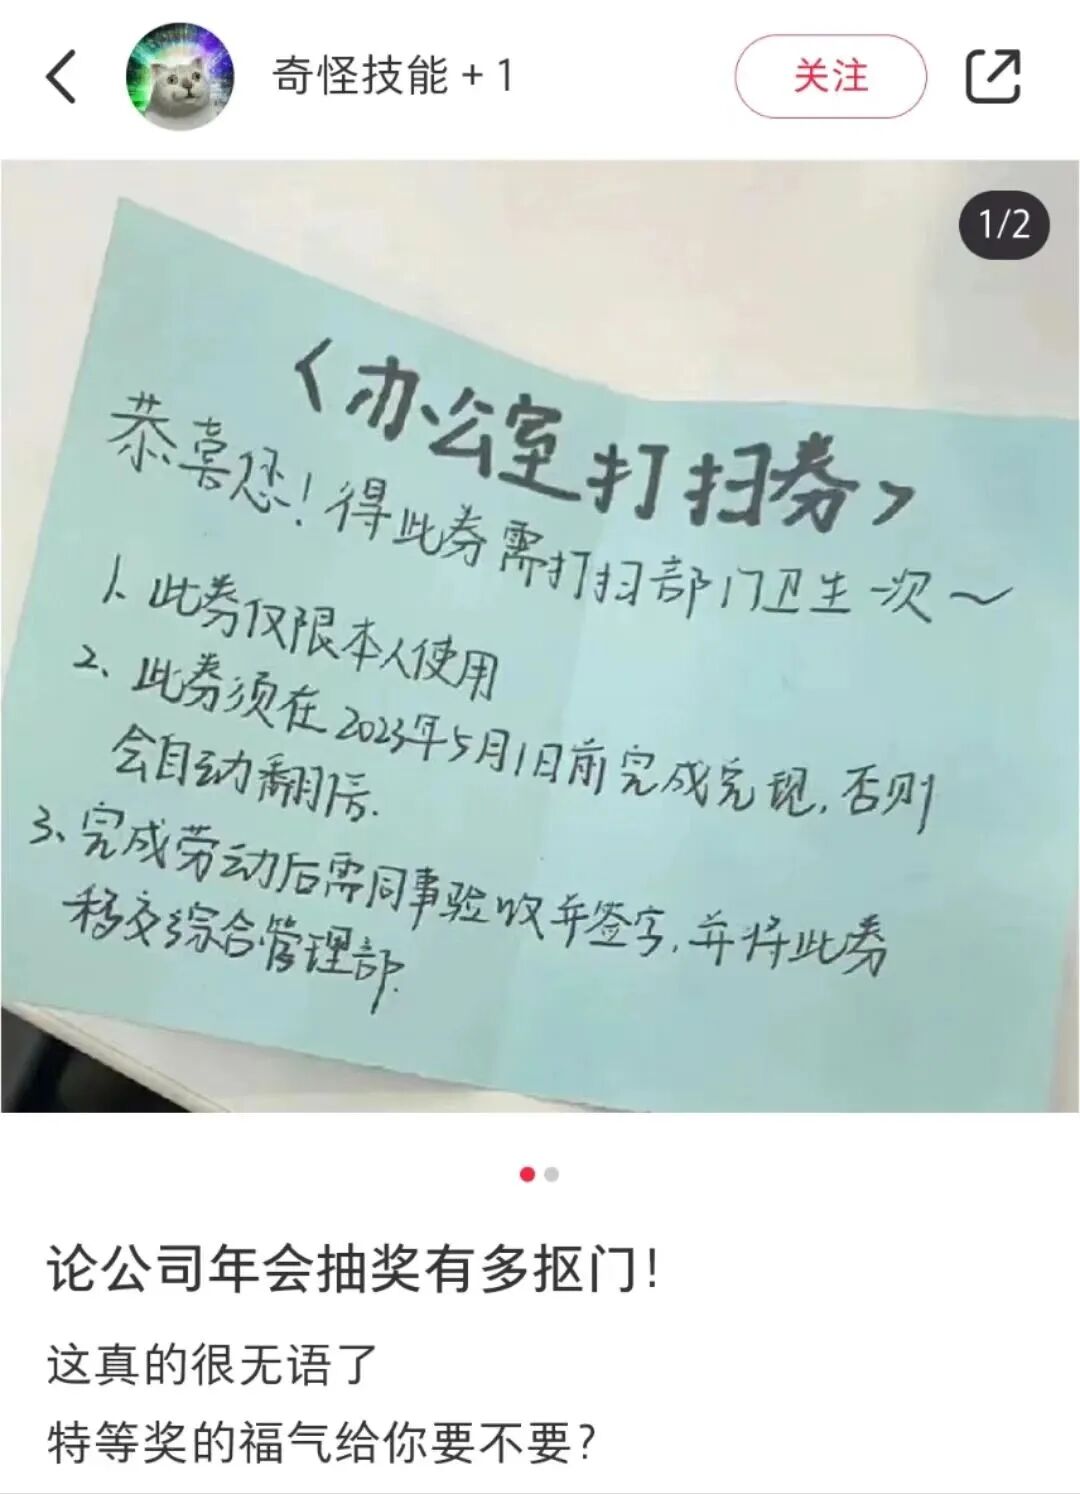 奇怪技能+1
关注
1/2
<办公室打扫券>
恭喜您！得此券需打扫部门卫生一次～
1、此券仅限本人使用
2、此券须在2023年5月1日前完成兑现，否则
会自动翻倍.
3、完成劳动后需同事验收并签字，并将此券
移交综合管理部.
论公司年会抽奖有多抠门！
这真的很无语了
特等奖的福气给你要不要？